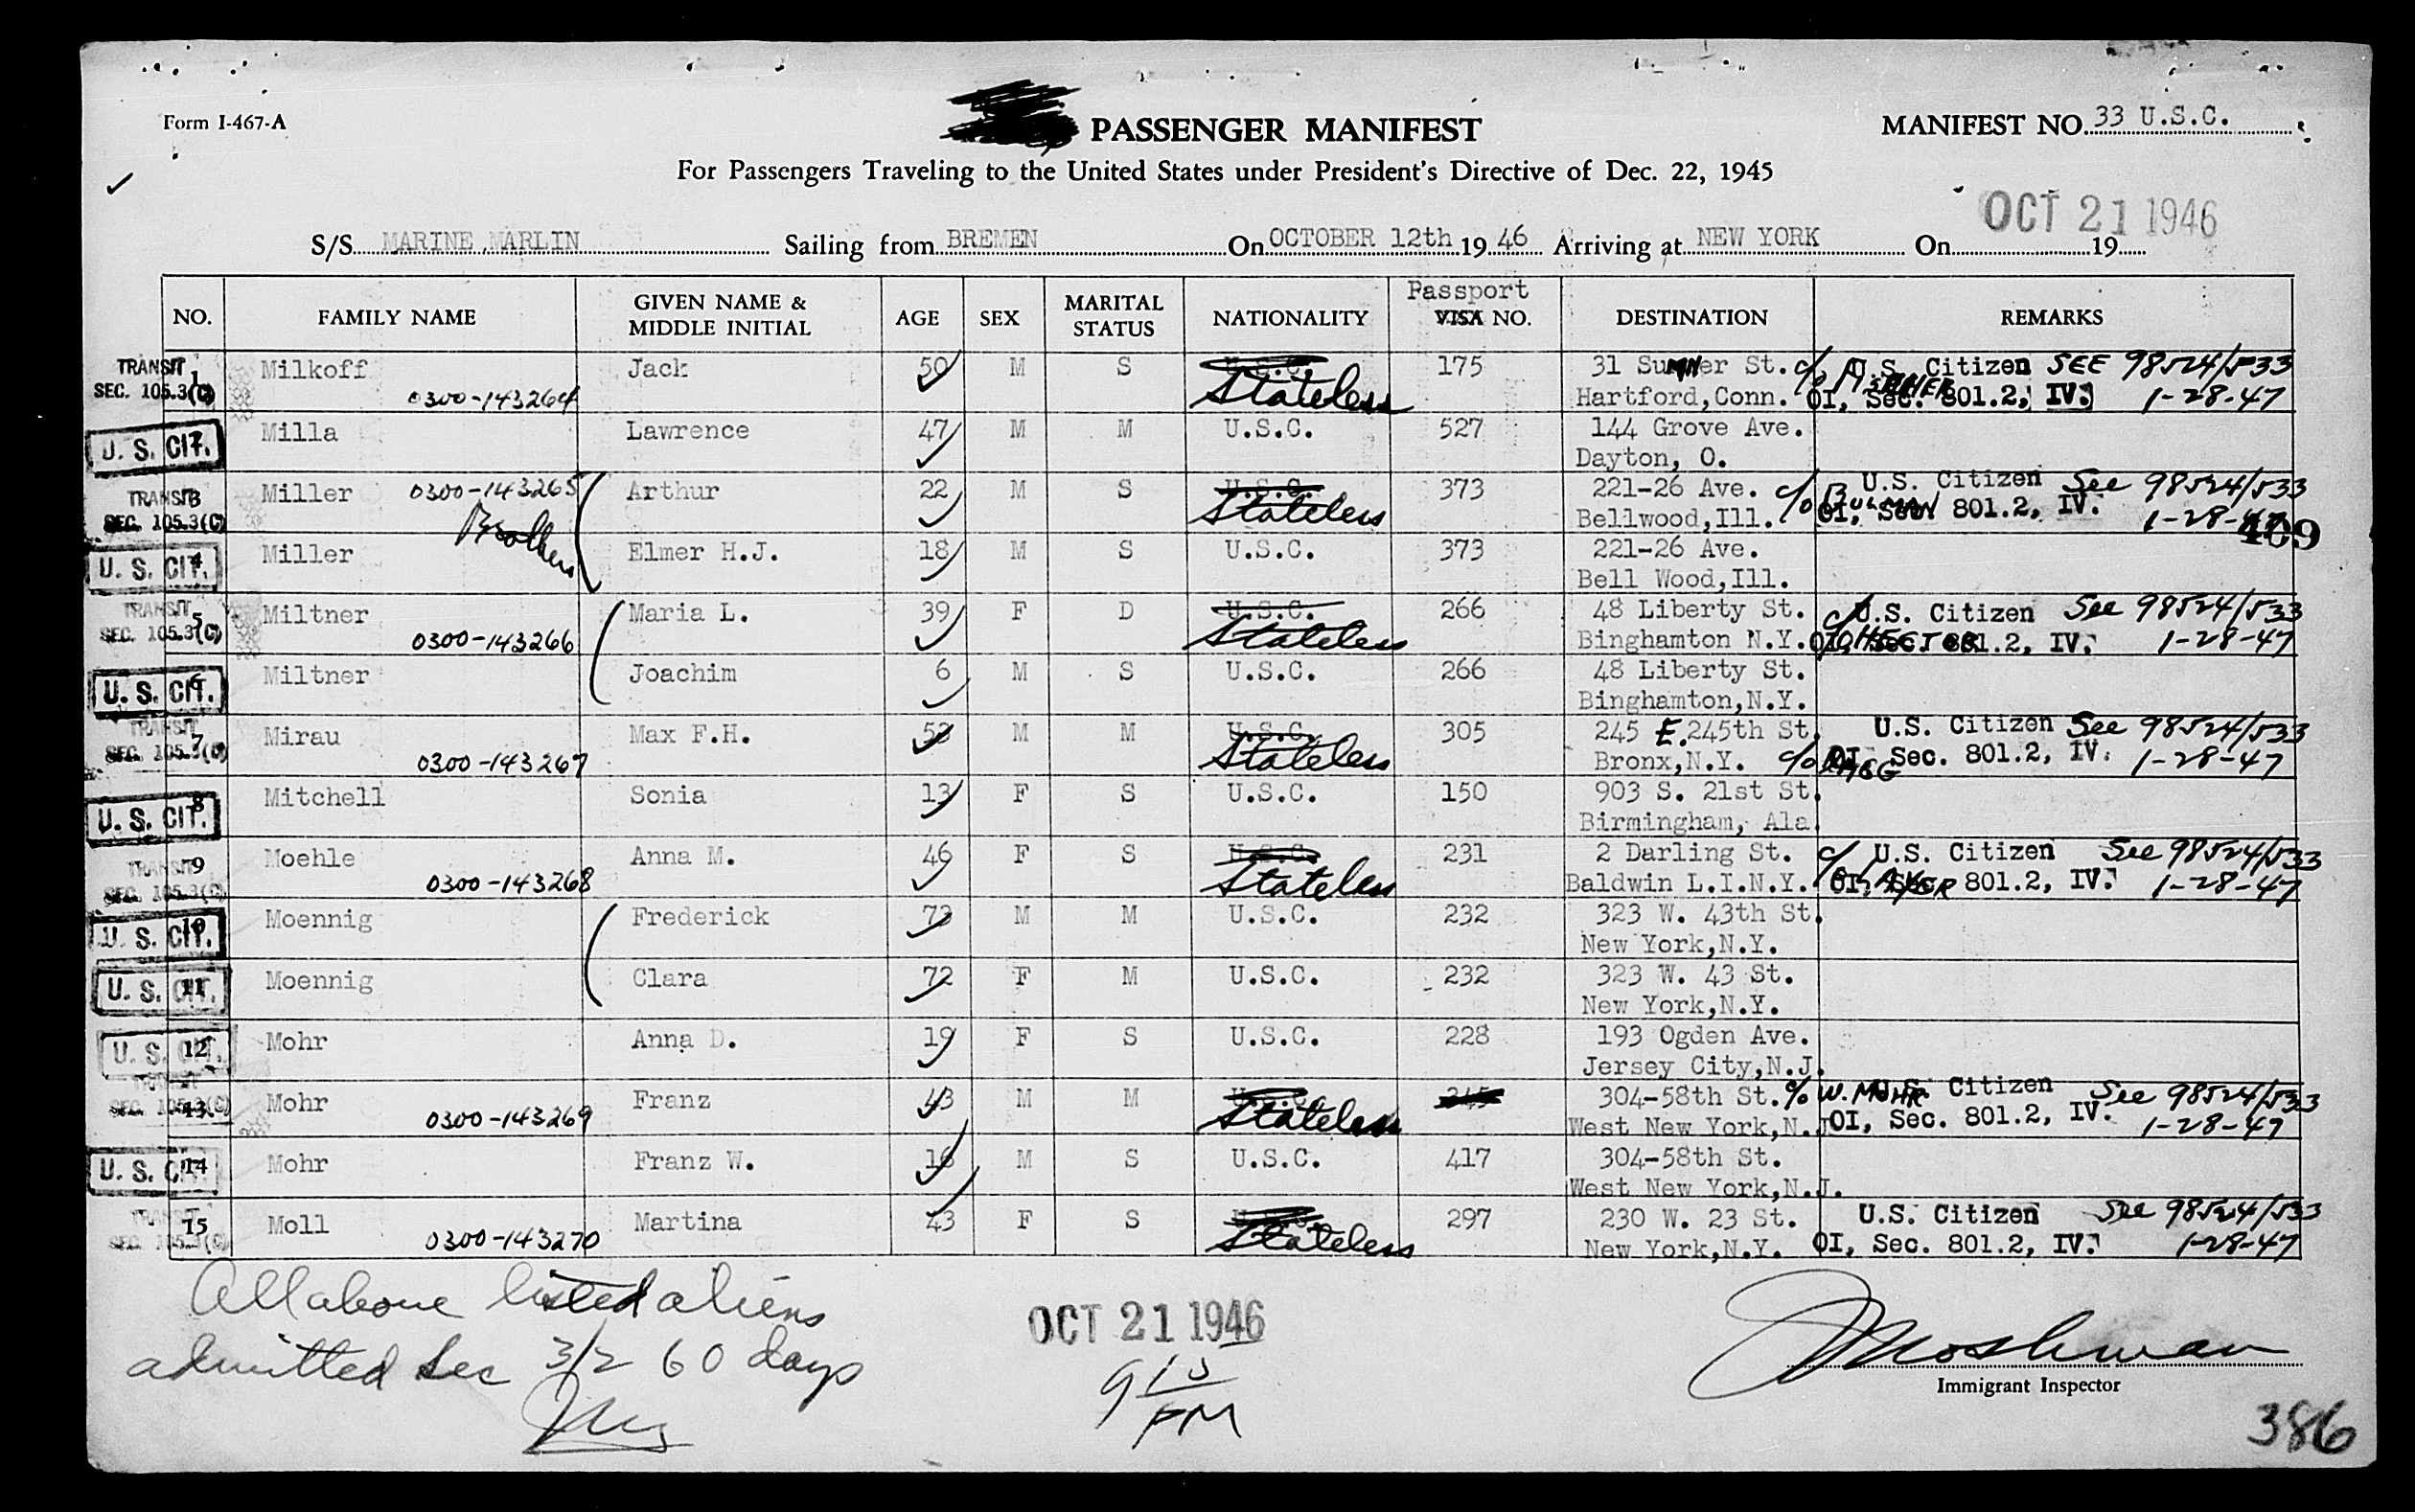 Form I-467-A
PASSENGER MANIFEST
MANIFEST NO. 33 U.S.C.
For Passengers Traveling to the United States under President's Directive of Dec. 22, 1945
OCT 21 1946
S/S MARINE MARLIN Sailing from BREMEN On OCTOBER 12th 19 46 Arriving at NEW YORK On 19
NO. FAMILY NAME GIVEN NAME & MIDDLE INITIAL AGE SEX MARITAL STATUS NATIONALITY Passport VISA NO. DESTINATION REMARKS
TRANSIT 1 Milkoff Jack 50 M S U.S.C. 175 31 Sumner St. c/o U.S. Citizen SEE 98524/533
SEC. 105.3(C) 0300-143264 Stateless Hartford,Conn. OI, Sec. 801.2, IV. 1-28-47
U. S. CIT. 2 Milla Lawrence 47 M M U.S.C. 527 144 Grove Ave.
Dayton, O.
TRANSIT 3 Miller 0300-143265 Arthur 22 M S U.S.C. 373 221-26 Ave. c/o U.S. Citizen See 98524/533
SEC. 105.3(C) Brothers Stateless Bellwood,Ill. OI, Sec. 801.2, IV. 1-28-47
469
U. S. CIT. 4 Miller Elmer H.J. 18 M S U.S.C. 373 221-26 Ave.
Bell Wood,Ill.
TRANSIT 5 Miltner Maria L. 39 F D U.S.C. 266 48 Liberty St. c/o U.S. Citizen See 98524/533
SEC. 105.3(C) 0300-143266 Stateless Binghamton N.Y. OI, Sec. 801.2, IV. 1-28-47
U. S. CIT. 6 Miltner Joachim 6 M S U.S.C. 266 48 Liberty St.
Binghamton,N.Y.
TRANSIT 7 Mirau Max F.H. 53 M M U.S.C. 305 245 E. 245th St. U.S. Citizen See 98524/533
SEC. 105.3(C) 0300-143267 Stateless Bronx,N.Y. c/o OI, Sec. 801.2, IV. 1-28-47
U. S. CIT. 8 Mitchell Sonia 13 F S U.S.C. 150 903 S. 21st St.
Birmingham, Ala.
TRANSIT 9 Moehle Anna M. 46 F S U.S.C. 231 2 Darling St. c/o U.S. Citizen See 98524/533
SEC. 105.3(C) 0300-143268 Stateless Baldwin L.I.N.Y. OI, Sec. 801.2, IV. 1-28-47
U. S. CIT. 10 Moennig Frederick 73 M M U.S.C. 232 323 W. 43th St.
New York,N.Y.
U. S. CIT. 11 Moennig Clara 72 F M U.S.C. 232 323 W. 43 St.
New York,N.Y.
U. S. CIT. 12 Mohr Anna D. 19 F S U.S.C. 228 193 Ogden Ave.
Jersey City,N.J.
TRANSIT 13 Mohr Franz 43 M M U.S.C. 345 304-58th St. c/o W. MOHR U.S. Citizen See 98524/533
SEC. 105.3(C) 0300-143269 Stateless West New York,N.J. OI, Sec. 801.2, IV. 1-28-47
U. S. CIT. 14 Mohr Franz W. 16 M S U.S.C. 417 304-58th St.
West New York,N.J.
TRANSIT 15 Moll Martina 43 F S 297 230 W. 23 St. U.S. Citizen See 98524/533
SEC. 105.3(C) 0300-143270 Stateless New York,N.Y. OI, Sec. 801.2, IV. 1-28-47
All above listed aliens
admitted Sec 3/2 60 days
OCT 21 1946
9 15
PM
Immigrant Inspector
386